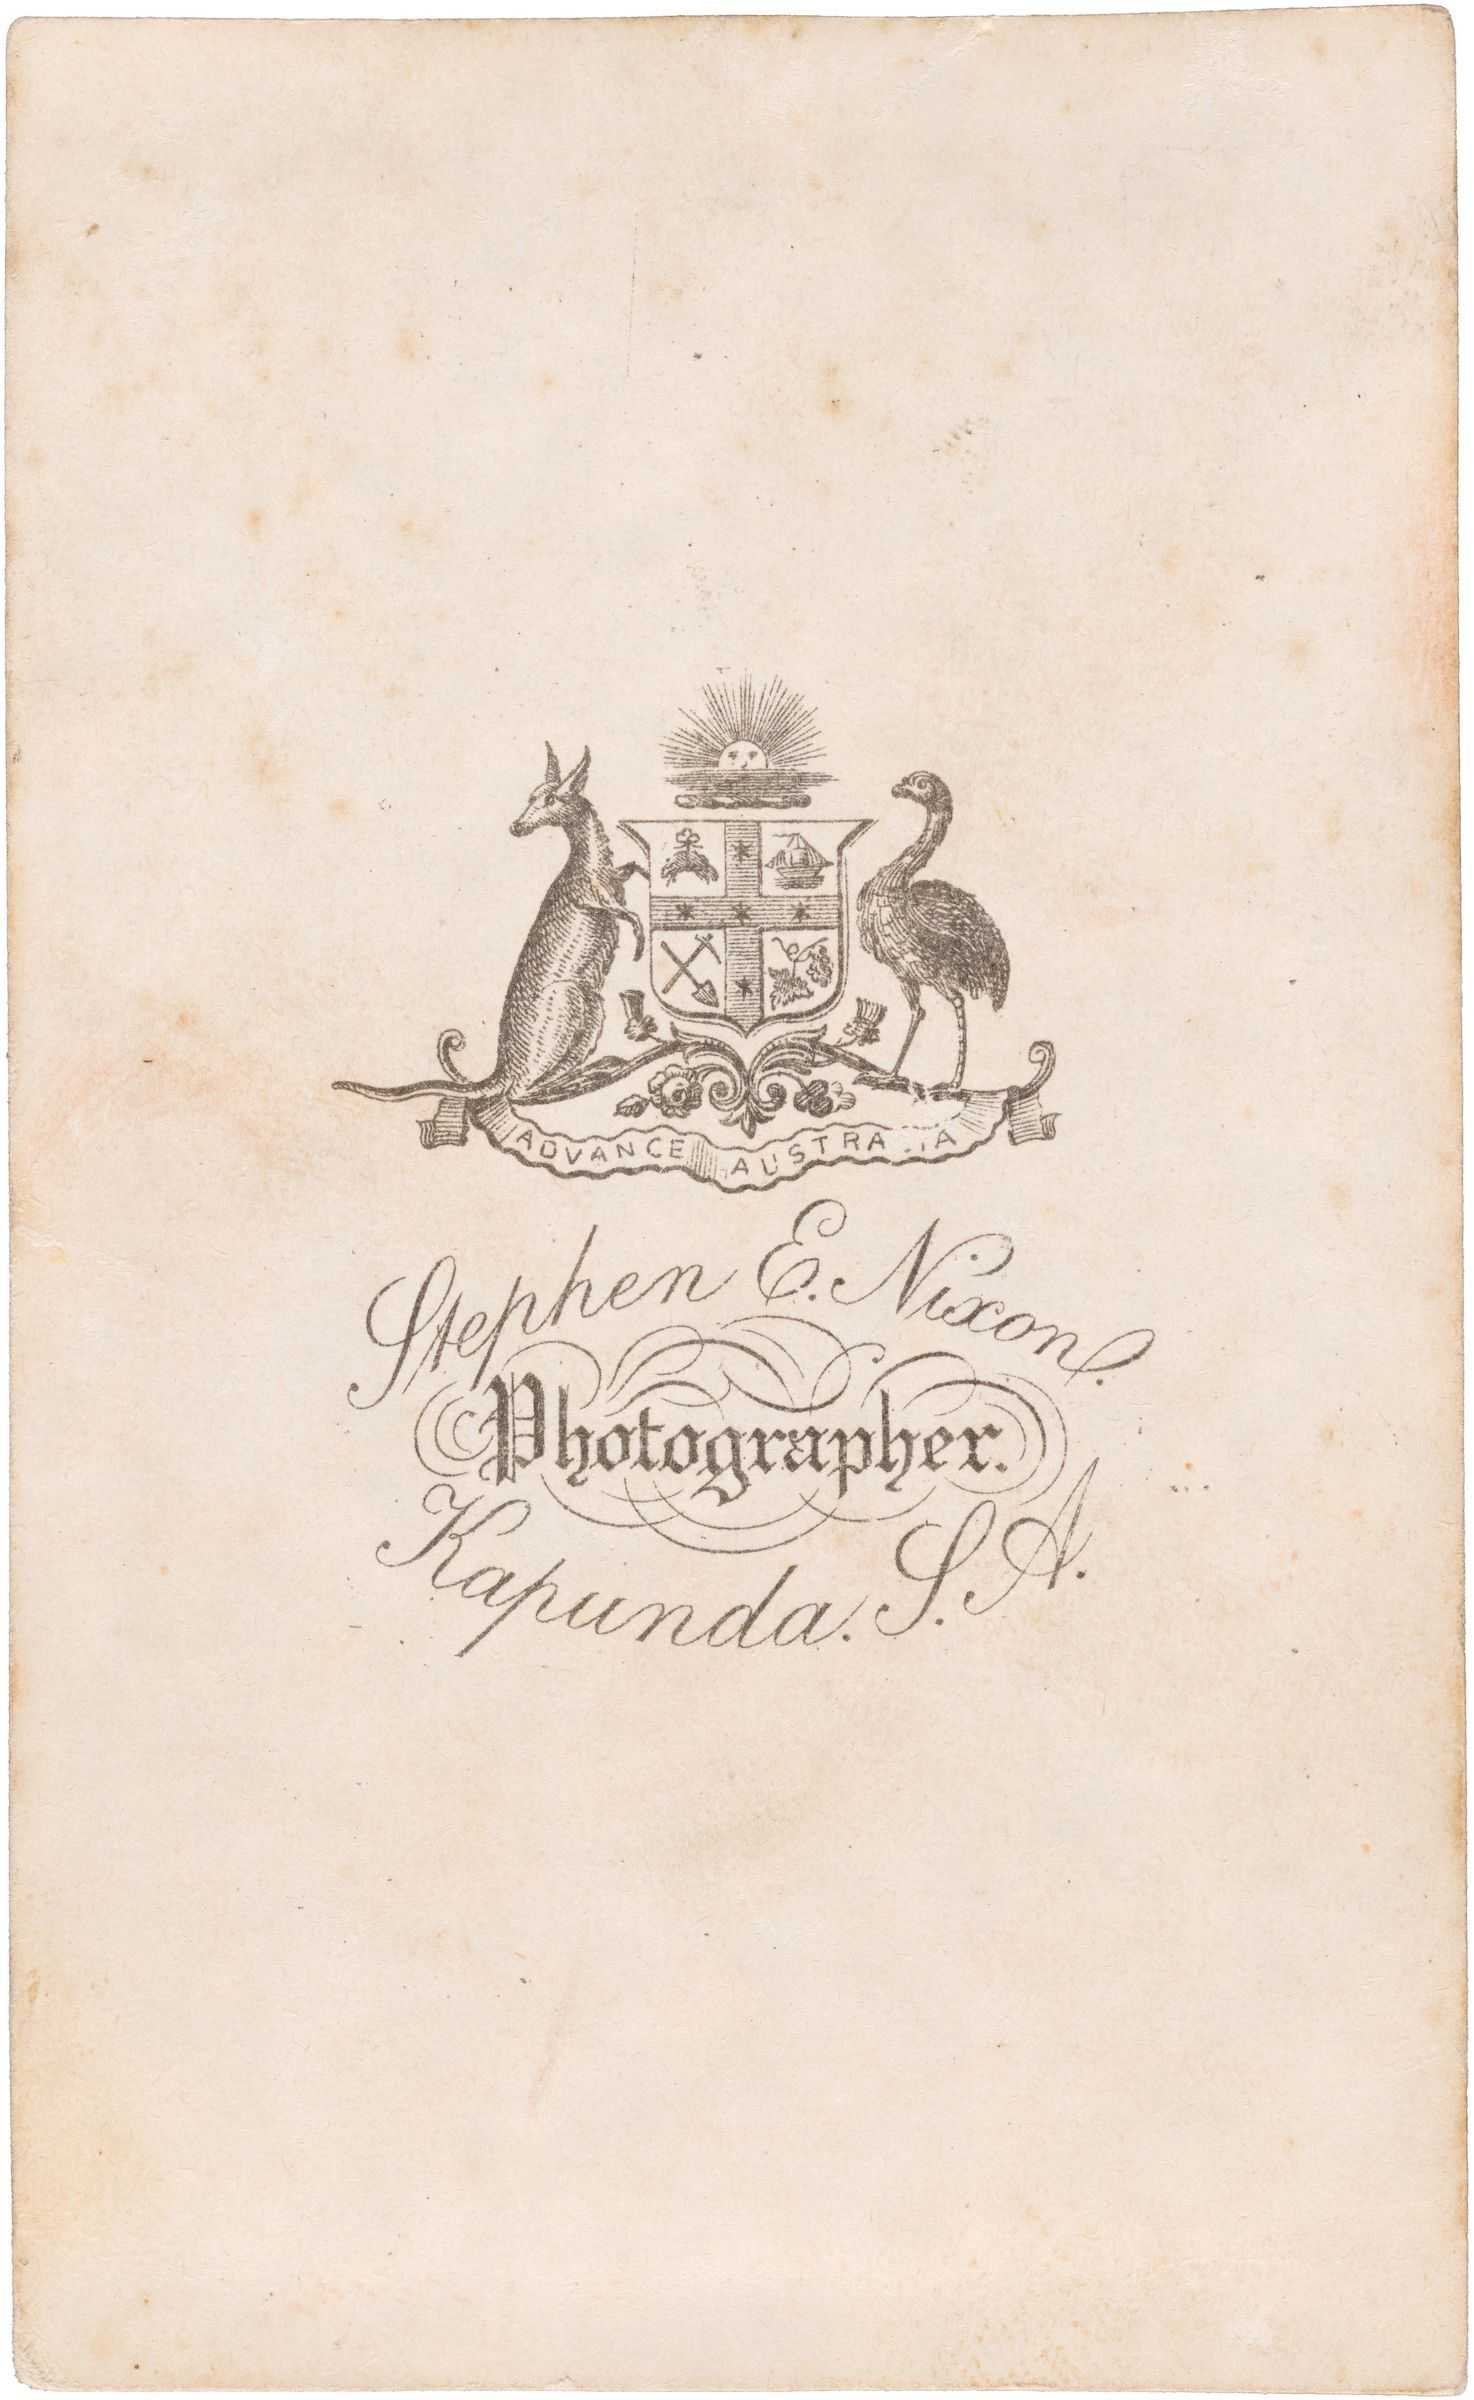 ADVANCE AUSTRALIA
Stephen E. Nixon.
Photographer.
Kapunda. S. A.